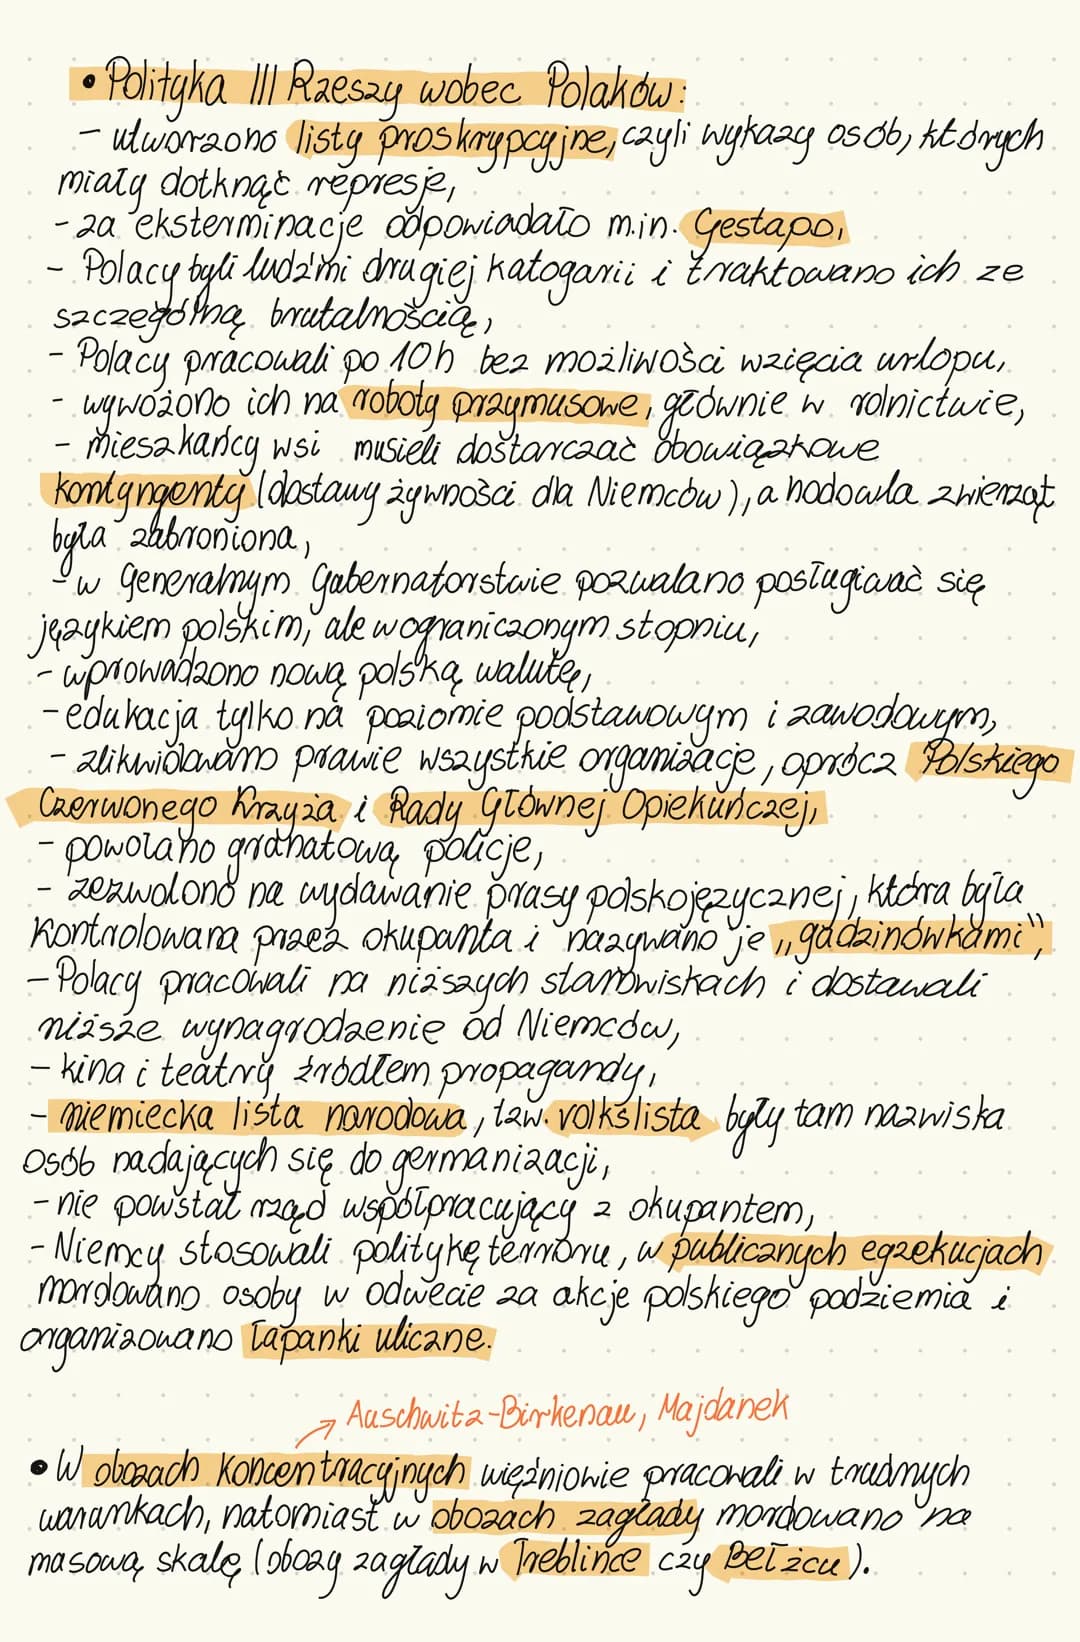 • Polityka III Rzeszy wobec Polaków:
- utworzono listy proskrypcyjne, czyli wykazy osób, których
miały dotknąć represje,
- za eksterminacje odpowiadało m.in. Gestapo,
- Polacy byli ludźmi drugiej katogarii i traktowano ich ze
szczególną brutalnością,
- Polacy pracowali po 10h bez możliwości wzięcia urlopu,
- wywożono ich na roboty przymusowe, głównie w rolnictwie,
- mieszkańcy wsi musieli dostarczać obowiązkowe
kontyngenty (dostawy żywności dla Niemców), a hodowla zwierząt
była zabroniona,
- w Generalnym Gubernatorstwie pozwalano posługiwać się
językiem polskim, ale w ograniczonym stopniu,
- wprowadzono nową polską walutę,
- edukacja tylko na poziomie podstawowym i zawodowym,
- zlikwidowano prawie wszystkie organizacje, oprócz Polskiego
Czerwonego Krzyża i Rady Głównej Opiekuńczej,
- powołano granatową policje,
- zezwolono na wydawanie prasy polskojęzycznej, która była
kontrolowana przez okupanta i nazywano je „gadzinówkami",
- Polacy pracowali na niższych stanowiskach i dostawali
niższe wynagrodzenie od Niemców,
- kina i teatry źródłem propagandy,
- niemiecka lista narodowa, tzw. volkslista były tam nazwiska
osób nadających się do germanizacji,
- nie powstał rząd współpracujący z okupantem,
- Niemcy stosowali politykę terroru, w publicznych egzekucjach
mordowano osoby w odwecie za akcje polskiego podziemia i
organizowano łapanki uliczne.
→ Auschwitz-Birkenau, Majdanek
• W obozach koncentracyjnych więźniowie pracowali w trudnych
warunkach, natomiast w obozach zagłady mordowano na
masową skalę (obozy zagłady w Treblince czy Bełżcu).